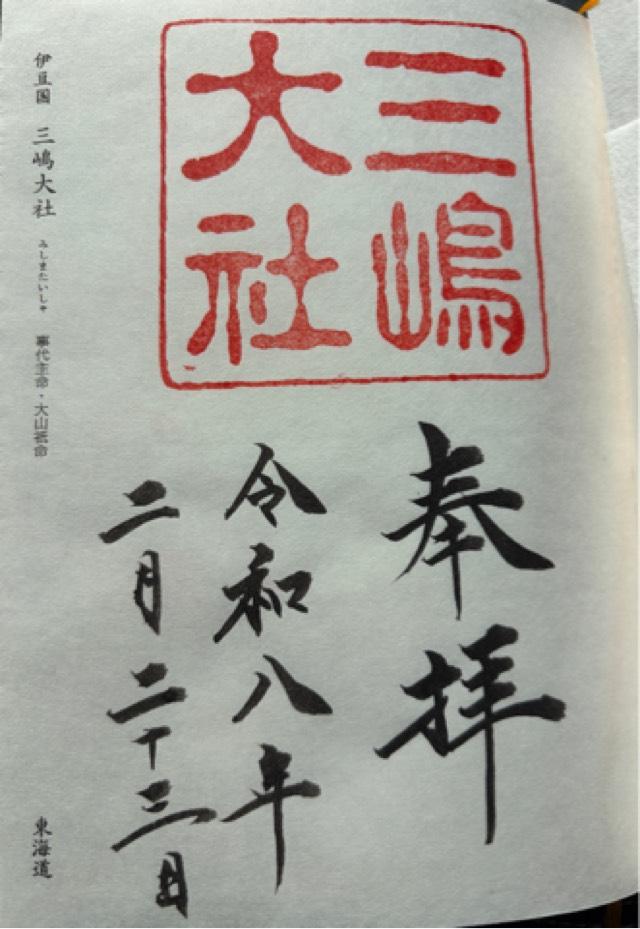 三嶋
大社
奉拝
令和八年
二月二十三日
伊豆国 三嶋大社 みしまたいしゃ 事代主命・大山祇命
東海道